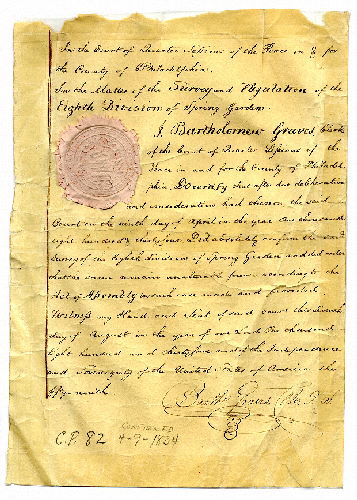 In the Court of Quarter Sessions of the Peace in & for
the County of Philadelphia.
In the Matter of the Survey and Regulation of the
Eighth Division of Spring Garden.
I, Bartholomew Graves, Clerk
of the Court of Quarter Sessions of the
Peace in and for the County of Philadel
phia, Do certify that after due deliberation
and consideration had thereon the said
Court on the ninth day of April in the year One thousand
eight hundred & thirty four, Did absolutely confirm the said
Survey of the Eighth division of Spring Garden and did order
that the same remain unalterable according to the
Act of Assembly in such case made and provided
Witness my Hand and Seal of said Court this
day of August in the year of our Lord One thousand
Eight hundred and thirty four and of the Independence
and Sovereignty of the United States of America the
fifty ninth
Barth Graves
C.P. 82
CONFIRMED
4-9-1834